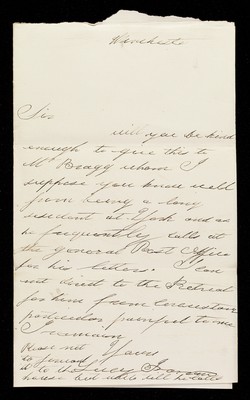 Manchester
Sir
will you be kind
enough to give this to
Mr Bragg whom I
suppose you know well
from being a long
resident at York and as
he frequently calls at
the general Post Office
for his letters. I can
not direct to the Retreat
for him from circumstances
particular painful to me
I remain
Please not Yours
to forward
it to the
house but till he calls